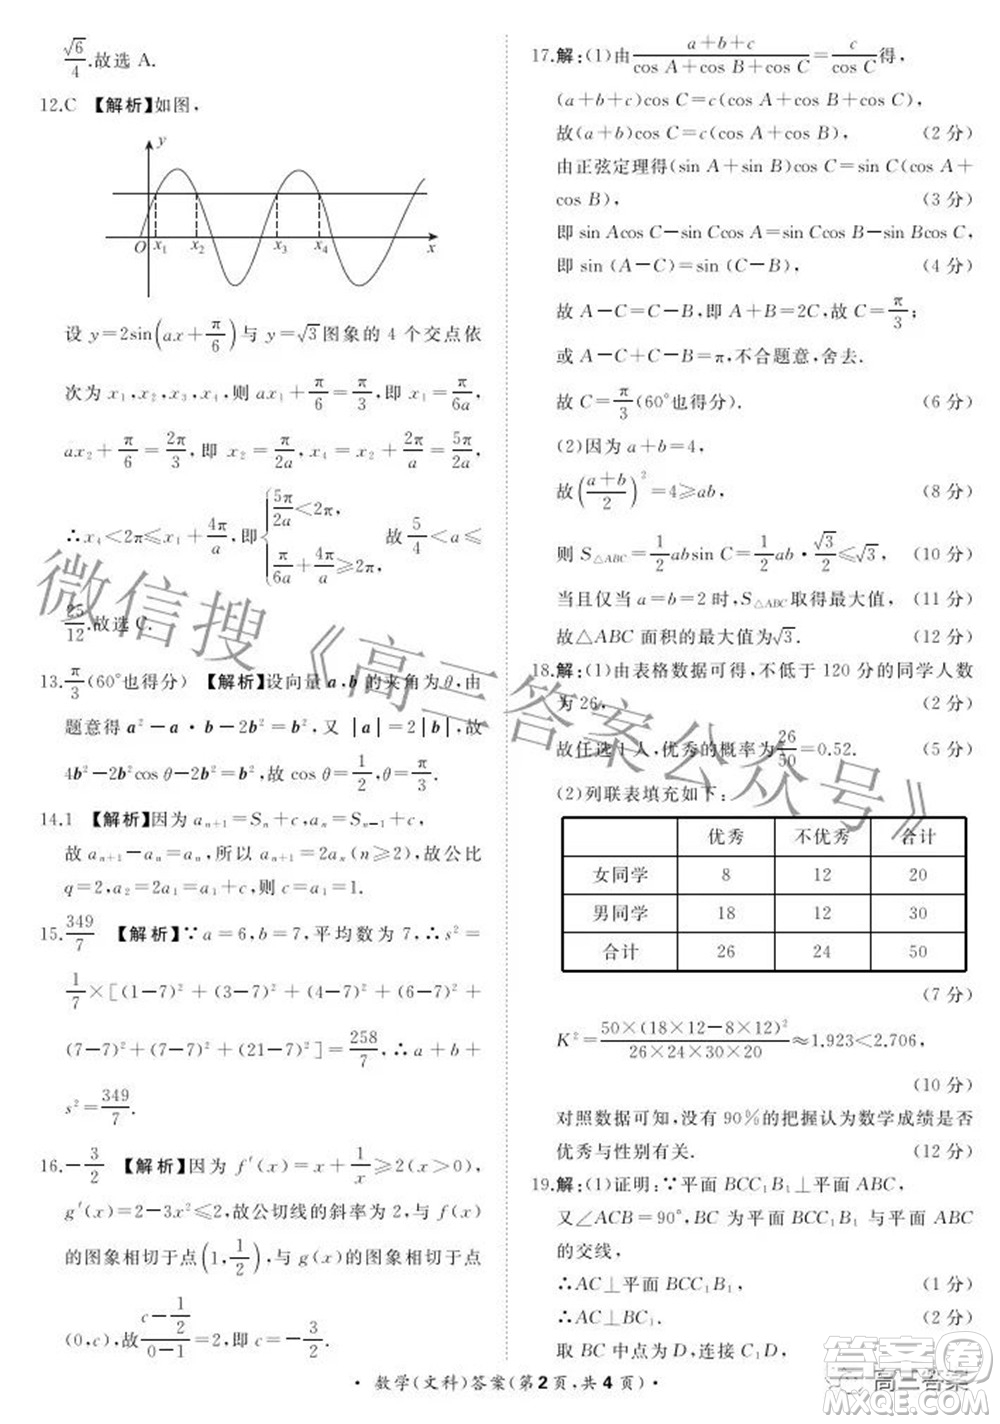 √6/4.故选 A.
12.C 【解析】如图，
y
O x₁ x₂ x₃ x₄ x
设 y=2sin(ax+π/6)与 y=√3图象的 4 个交点依
次为 x₁,x₂,x₃,x₄,则 ax₁+π/6=π/3,即 x₁=π/(6a),
ax₂+π/6=2π/3,即 x₂=π/(2a),x₄=π/(2a)+2π/a=5π/(2a),
∴x₄<2π≤x₁+4π/a,即{5π/(2a)<2π, π/(6a)+4π/a≥2π, 故 5/4<a≤
25/12.故选 C.
13.π/3(60°也得分) 【解析】设向量 a,b 的夹角为θ,由
题意得 a²-a·b-2b²=b²,又 |a|=2|b|,故
4b²-2b²cos θ-2b²=b²,故cos θ=1/2,θ=π/3.
14.1 【解析】因为 aₙ₊₁=Sₙ+c,aₙ=Sₙ₋₁+c,
故 aₙ₊₁-aₙ=aₙ,所以 aₙ₊₁=2aₙ(n≥2),故公比
q=2,a₂=2a₁=a₁+c,则 c=a₁=1.
15.349/7 【解析】∵a=6,b=7,平均数为 7,∴s²=
1/7×[(1-7)²+(3-7)²+(4-7)²+(6-7)²+
(7-7)²+(7-7)²+(21-7)²]=258/7,∴a+b+
s²=349/7.
16.-3/2 【解析】因为 f′(x)=x+1/x≥2(x>0),
g′(x)=2-3x²≤2,故公切线的斜率为 2,与 f(x)
的图象相切于点(1,1/2),与 g(x)的图象相切于点
(0,c),故(c-1/2)/(0-1)=2,即 c=-3/2.
17.解:(1)由(a+b+c)/(cos A+cos B+cos C)=c/cos C得,
(a+b+c)cos C=c(cos A+cos B+cos C),
故(a+b)cos C=c(cos A+cos B), (2 分)
由正弦定理得(sin A+sin B)cos C=sin C(cos A+
cos B), (3 分)
即 sin Acos C-sin Ccos A=sin Ccos B-sin Bcos C,
即 sin (A-C)=sin(C-B), (4 分)
故 A-C=C-B,即 A+B=2C,故 C=π/3;
或 A-C+C-B=π,不合题意,舍去.
故 C=π/3(60°也得分). (6 分)
(2)因为 a+b=4,
故((a+b)/2)²=4≥ab, (8 分)
则 S△ABC=1/2absin C=1/2ab·√3/2≤√3, (10 分)
当且仅当 a=b=2 时,S△ABC取得最大值, (11 分)
故△ABC 面积的最大值为√3. (12 分)
18.解:(1)由表格数据可得,不低于 120 分的同学人数
为 26, (2 分)
故任选 1 人,优秀的概率为26/50=0.52. (5 分)
(2)列联表填充如下:
优秀 不优秀 合计
女同学 8 12 20
男同学 18 12 30
合计 26 24 50
(7 分)
K²=50×(18×12-8×12)²/(26×24×30×20)≈1.923<2.706,
(10 分)
对照数据可知,没有 90%的把握认为数学成绩是否
优秀与性别有关. (12 分)
19.解:(1)证明:∵平面 BCC₁B₁⊥平面 ABC,
又∠ACB=90°,BC 为平面 BCC₁B₁ 与平面 ABC
的交线,
∴AC⊥平面 BCC₁B₁, (1 分)
∴AC⊥BC₁. (2 分)
取 BC 中点为 D,连接 C₁D,
· 数学(文科)答案(第 2 页,共 4 页) ·
微信搜《高三答案公众号》
高三答案
答案圈